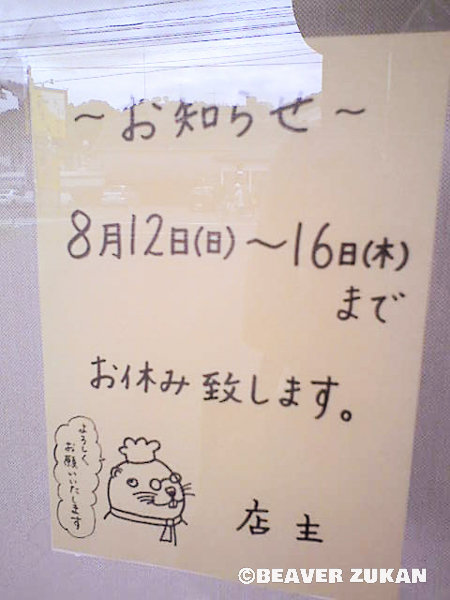 ～お知らせ～
8月12日(日)～16日(木)
まで
お休み致します。
よろしく、
お願いいたします
店主
©BEAVER ZUKAN